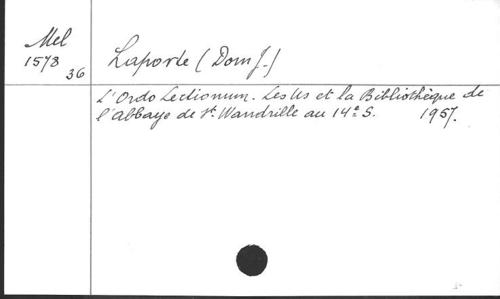 Mel
1578
36
Laporte (Dom J.)
L'Ordo Lectionum. Les Us et la Bibliothèque de
l'Abbaye de St. Wandrille au 14e S. 1957.